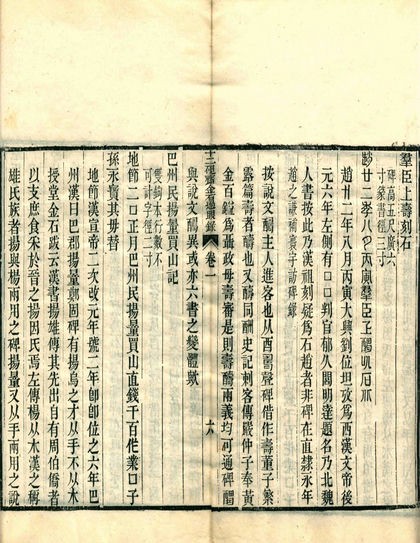 羣臣上壽刻石
碑高五尺廣六
寸篆書徑三寸
趙廿二年八月丙寅羣臣上醻此石北
趙廿二年八月丙寅大興劉位坦攷爲西漢文帝後
元六年左側有口口判官郁久閭明達題名乃北魏
人書按此乃漢祖刻疑爲石趙者非碑在直隸永年
趙之謙補寰宇訪碑錄
按說文醻主人進客也从酉𠷎聲碑借作壽董子繁
露篇壽者醻也又醻同酬史記刺客傳嚴仲子奉黃
金百鎰爲聶政母壽審是則壽醻兩義均可通碑醻
與說文醻異或亦六書之變體歟
卷一
十六
巴州民揚量買山記
雙鉤本行數不
可計字徑二寸
地節二口正月巴州民揚量買山直錢千百作業口子
孫永寶其毋替
地節漢宣帝二次改元年號二年卽卽位之六年巴
州漢曰巴郡揚量鄭固碑有揚烏之才从手不从木
授堂金石䟦云漢書揚雄傳其先出自有周伯僑者
以支庶食采於晉之揚因氏焉左傳楊从木漢之稱
雄氏族者揚與楊兩用之碑揚量又从手兩用之說